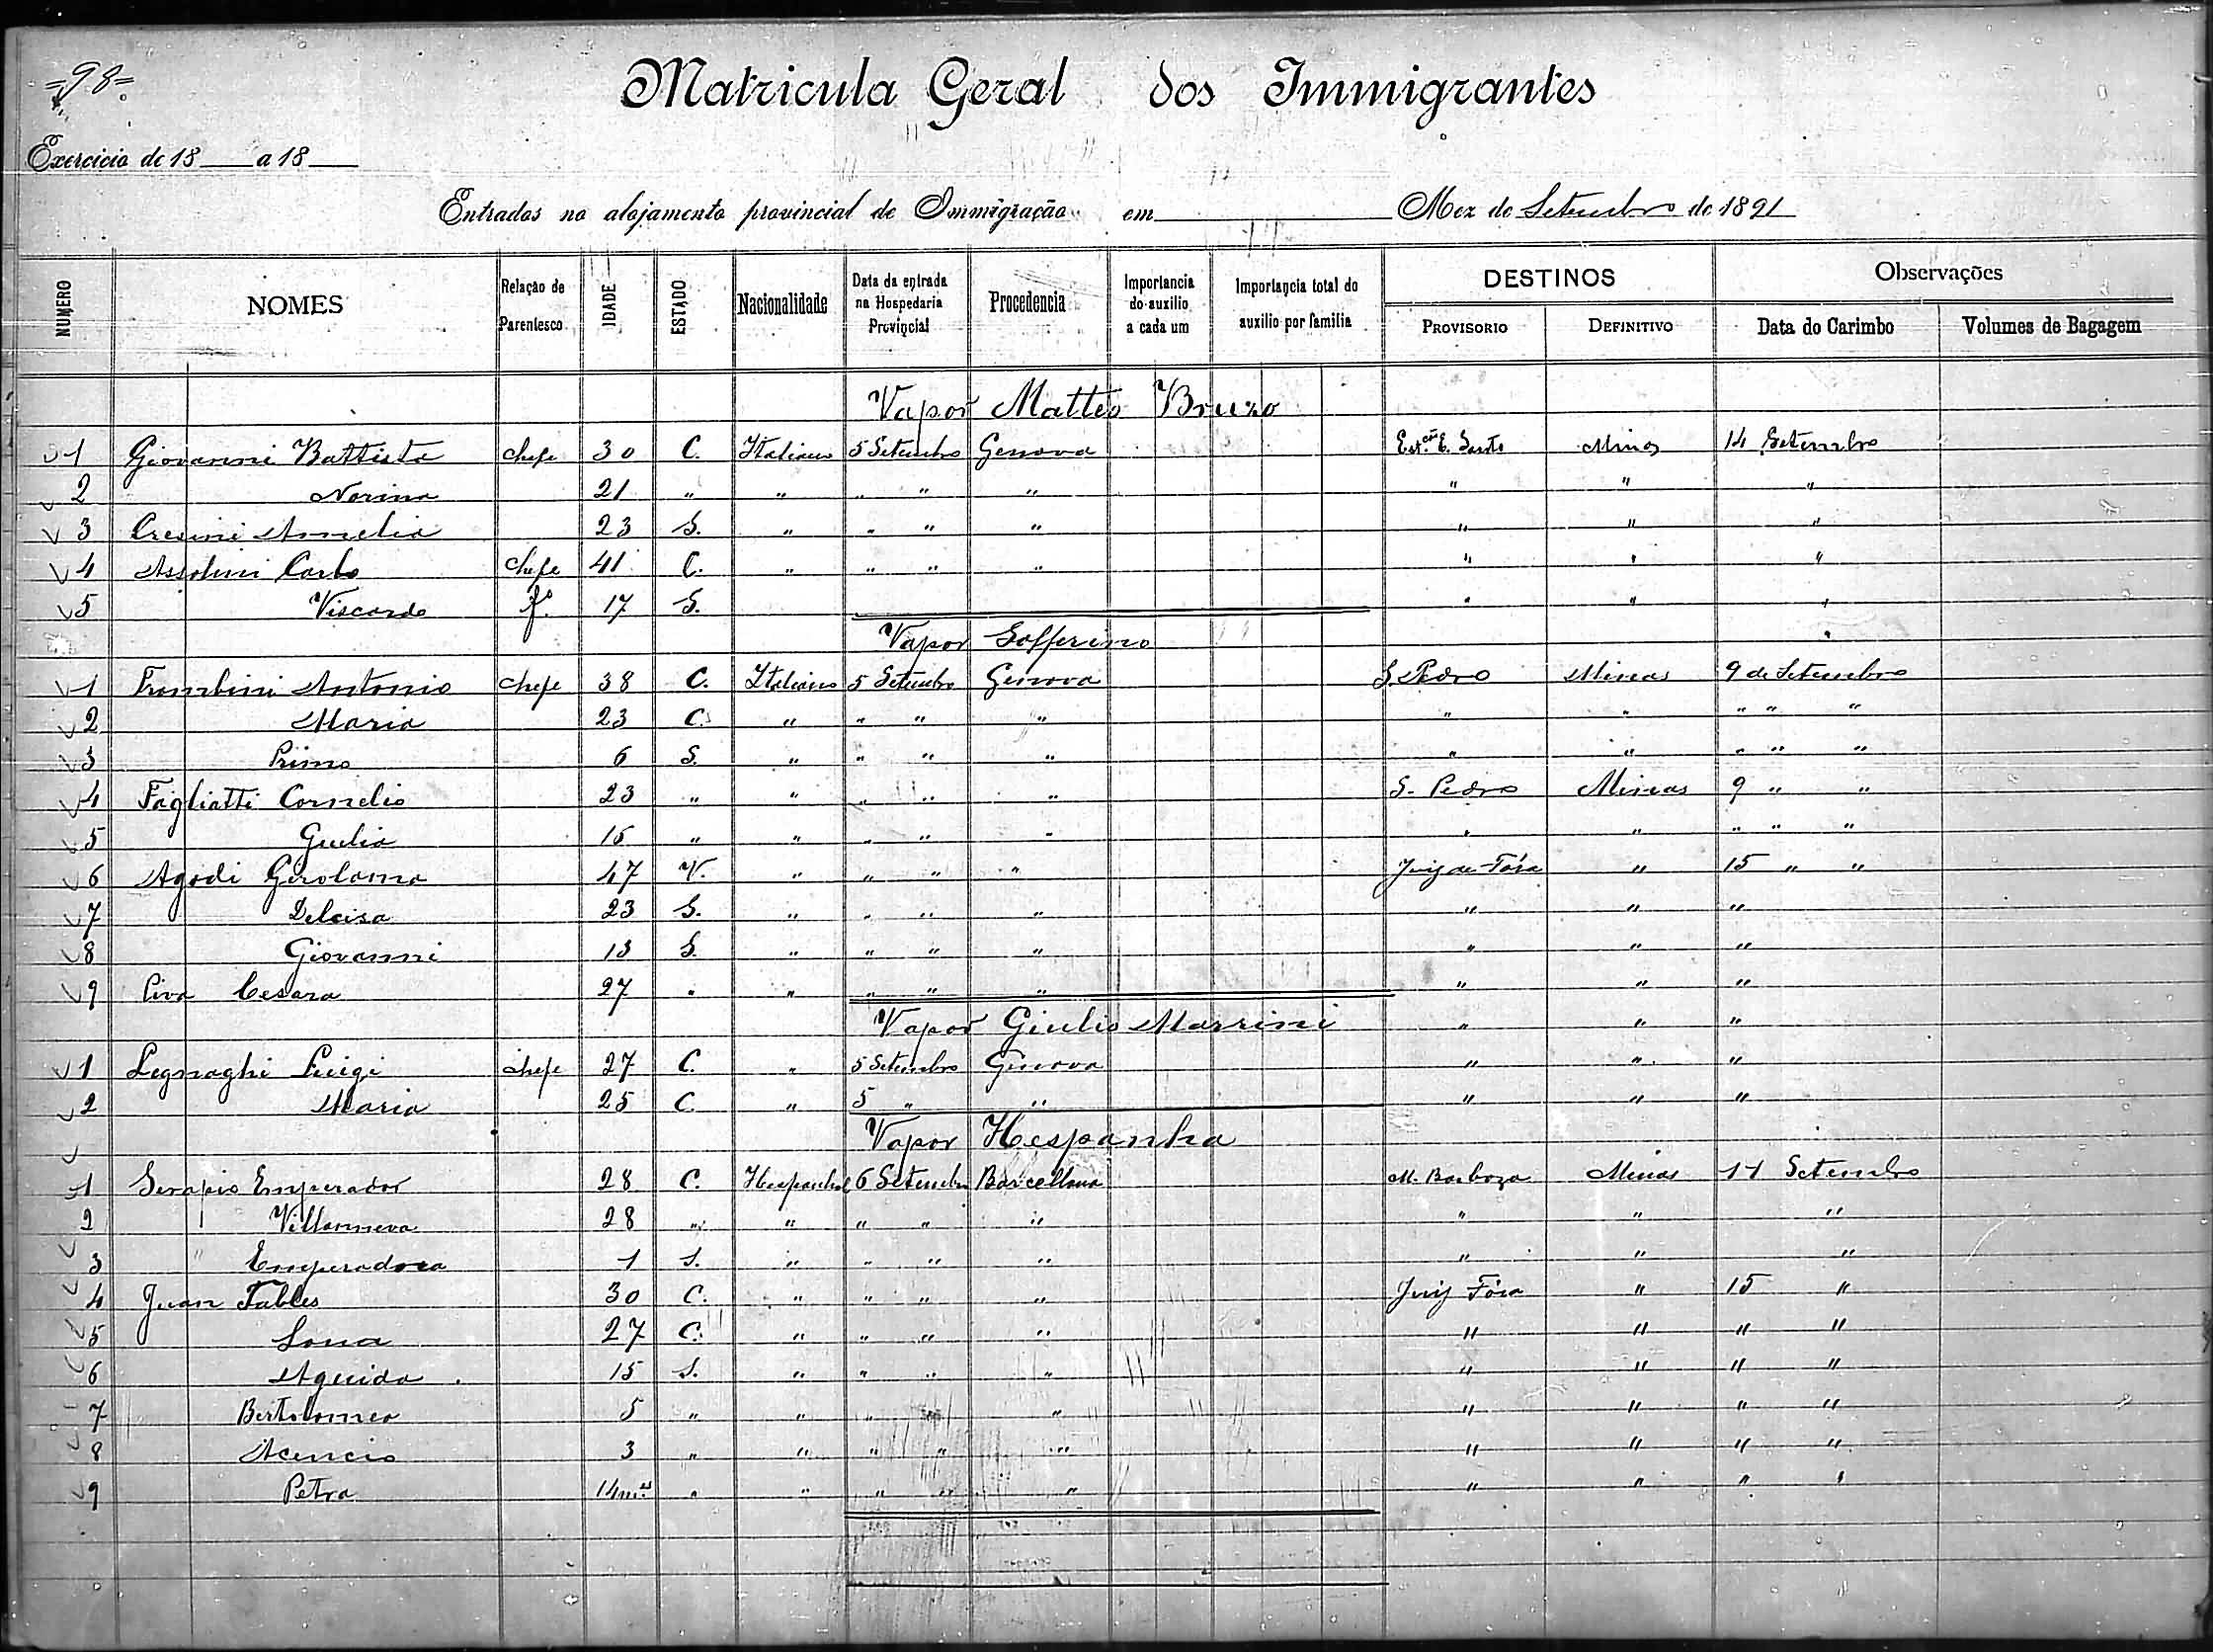 =98=
Matricula Geral dos Immigrantes
Exercicio de 18 a 18
Entradas no alojamento provincial de Immigração em Mez de Setembro de 1891
NUMERO NOMES Relação de Parentesco IDADE ESTADO Nacionalidade Data da entrada na Hospedaria Provincial Procedencia Importancia do auxilio a cada um Importancia total do auxilio por familia DESTINOS PROVISORIO DEFINITIVO Observações Data do Carimbo Volumes de Bagagem
Vapor Matteo Bruzo
1 Giovanni Battista chefe 30 C. Italiano 5 Setembro Genova Est.ção E. Santo Minas 14 Setembro
2 Norina 21 " " " " " " " "
3 Cresini Amelia 23 S. " " " " " " "
4 Assolini Carlo chefe 41 C. " " " " " " "
5 Viscardo f.º 17 S. " " "
Vapor Solferino
1 Trombini Antonio chefe 38 C. Italiano 5 Setembro Genova S. Pedro Minas 9 de Setembro
2 Maria 23 C. " " " " " " " " "
3 Primo 6 S. " " " " " " " " "
4 Fagliatti Cornelio 23 " " " " " S. Pedro Minas 9 " "
5 Giulia 15 " " " " " " " " " "
6 Agodi Girolamo 47 V. " " " " Juiz de Fóra " 15 " "
7 Delcisa 23 S. " " " " " " "
8 Giovanni 13 S. " " " " " " "
9 Piva Cesara 27 " " " " " " " "
Vapor Giulio Marrini " " "
1 Legnaghi Luigi chefe 27 C. " 5 Setembro Genova " " "
2 Maria 25 C. " 5 " " " " "
Vapor Hespanha
1 Serapio Emperador 28 C. Hespanhol 6 Setembro Barcellona M. Barboza Minas 11 Setembro
2 Villanueva 28 " " " " " " " "
3 " Emperadora 1 S. " " " " " " "
4 Juan Tables 30 C. " " " " Juiz Fóra " 15 "
5 Lona 27 C. " " " " " " " "
6 Aguida 15 S. " " " " " " " "
7 Bertolomeo 5 " " " " " " " "
8 Acencio 3 " " " " " " " " "
9 Petra 14 m.es " " " " " " " " "